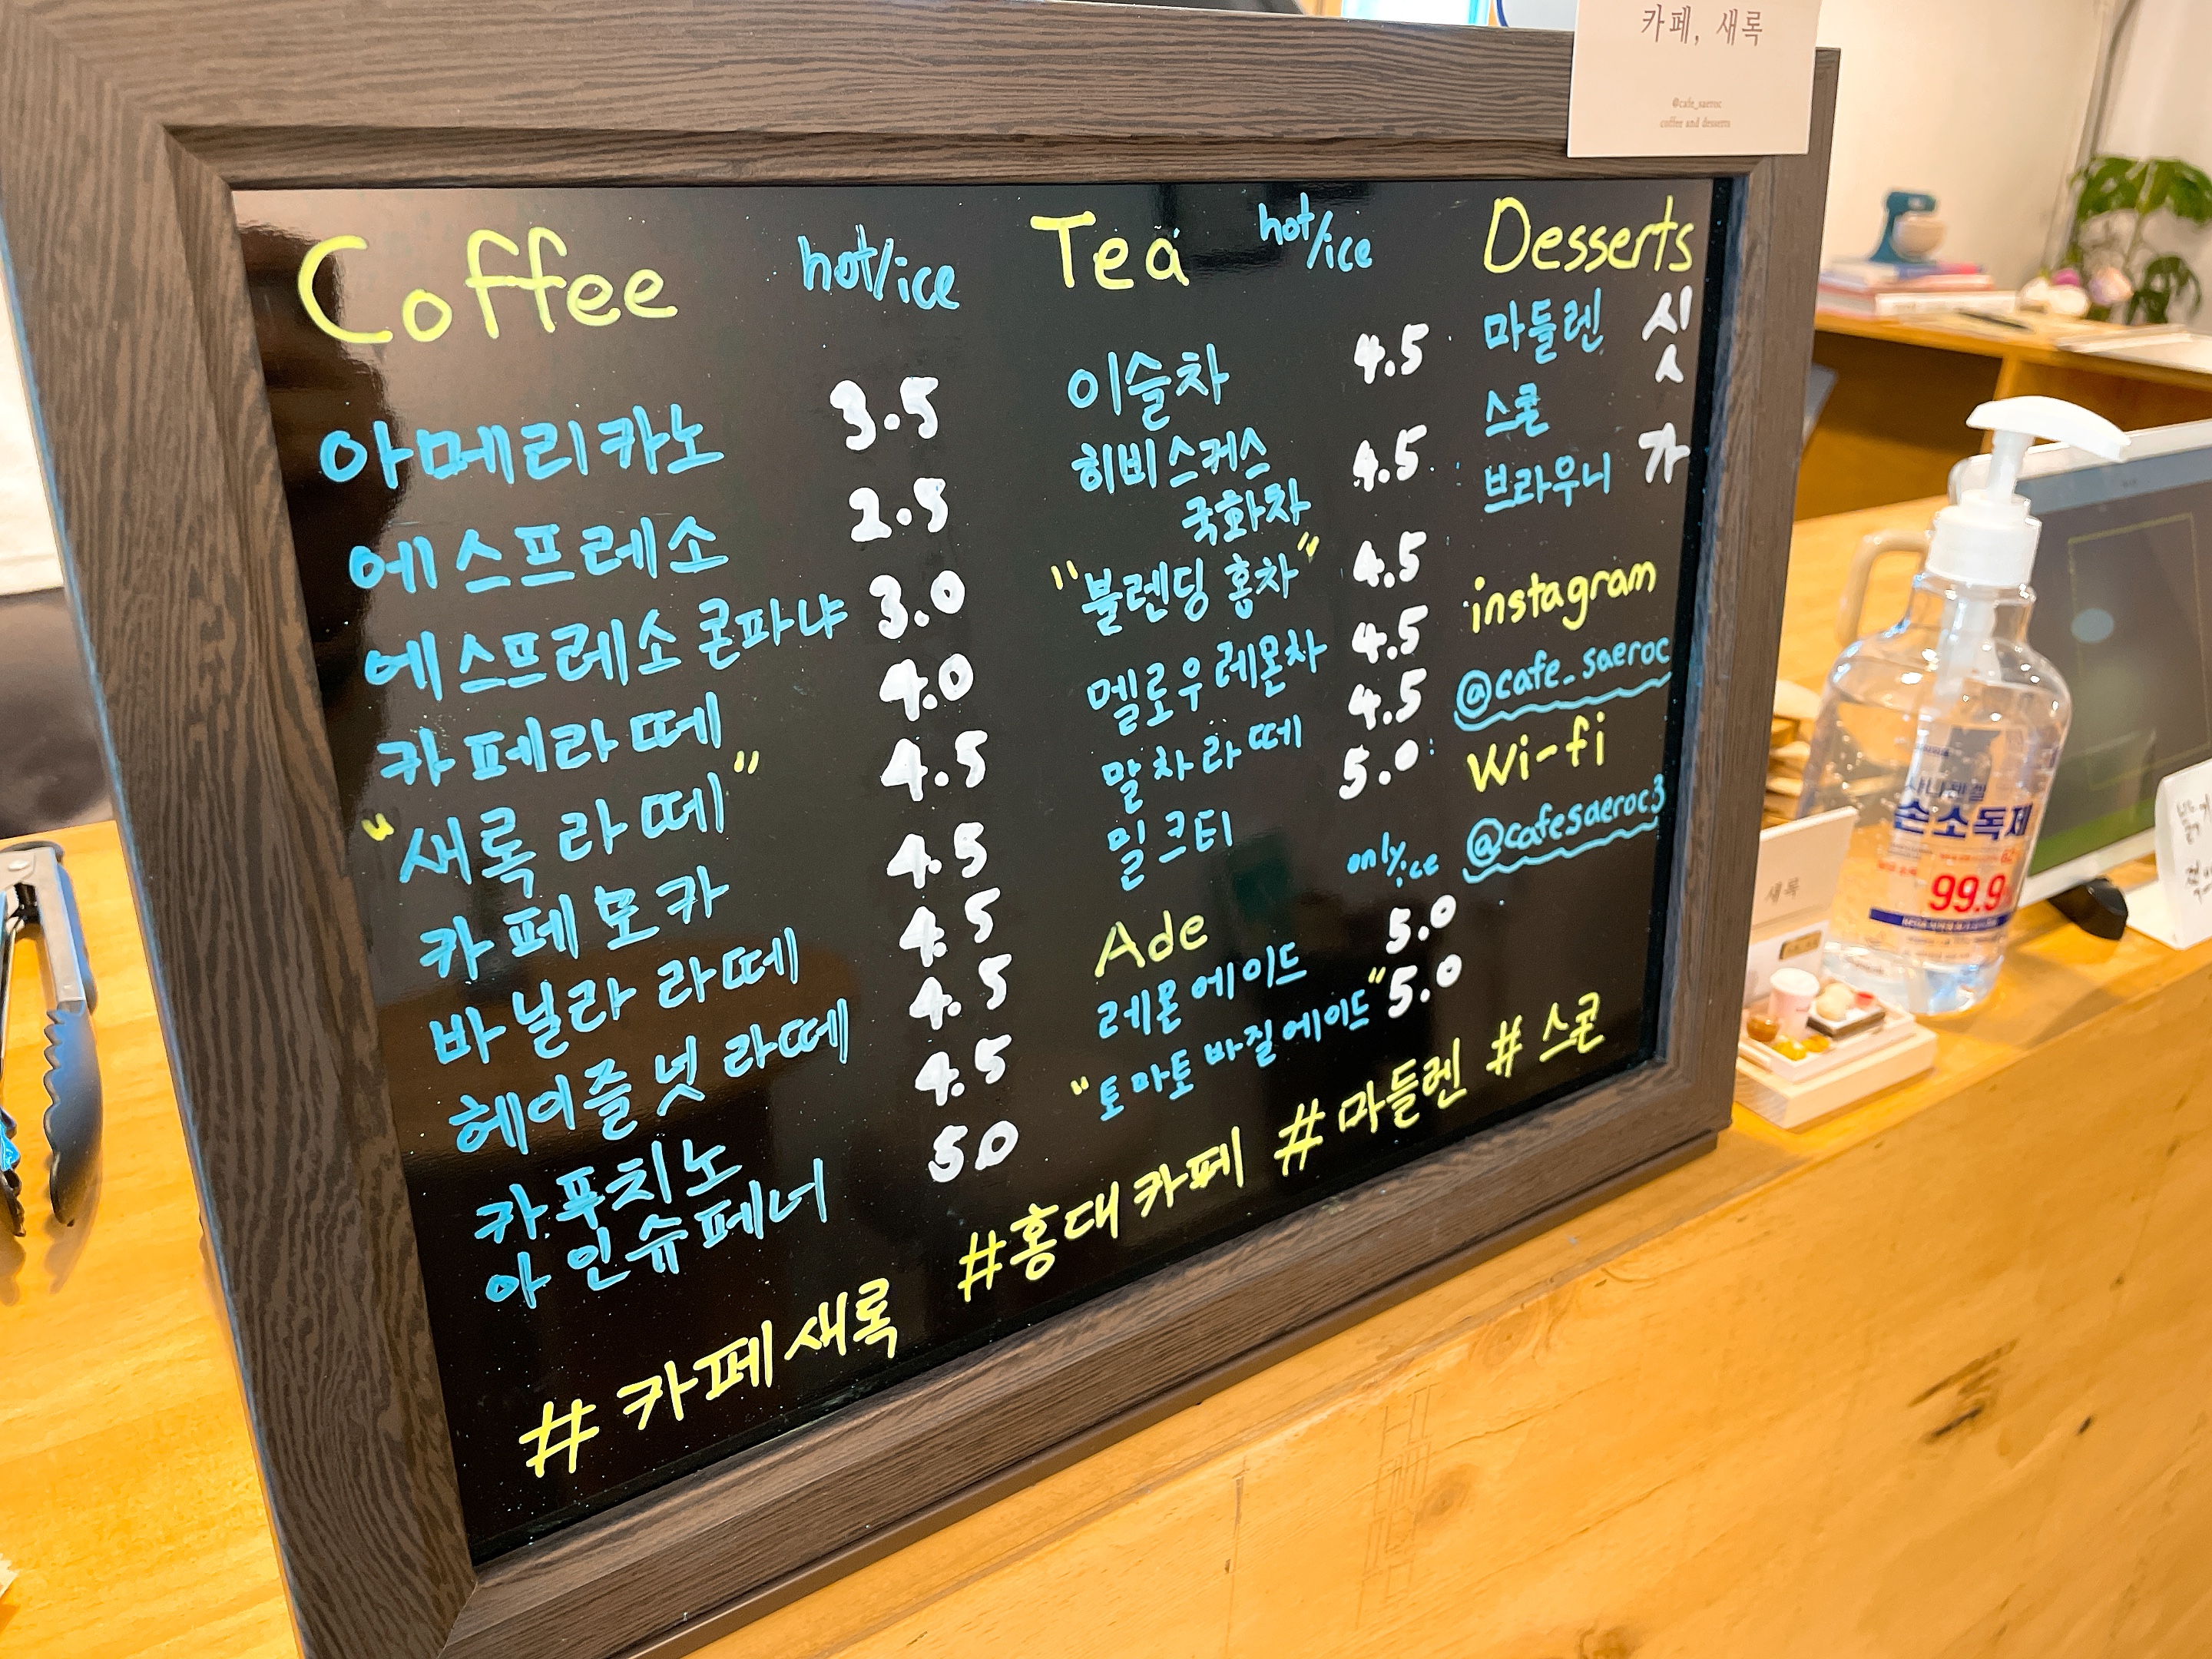 카페, 새록
@cafe_saeroc
coffee and desserts
Coffee hot/ice
아메리카노 3.5
에스프레소 2.5
에스프레소 콘파냐 3.0
카페라떼 4.0
"새록 라떼" 4.5
카페모카 4.5
바닐라 라떼 4.5
헤이즐넛 라떼 4.5
카푸치노 4.5
아인슈페너 5.0
Tea hot/ice
이슬차 4.5
히비스커스
국화차 4.5
"블렌딩 홍차" 4.5
멜로우 레몬차 4.5
말차라떼 4.5
밀크티 5.0
Ade only ice
레몬에이드 5.0
"토마토 바질에이드" 5.0
Desserts
마들렌 시
스콘 스
브라우니 가
instagram
@cafe_saeroc
Wi-fi
@cafesaeroc3
#카페새록 #홍대카페 #마들렌 #스콘
새록
손소독제
99.9